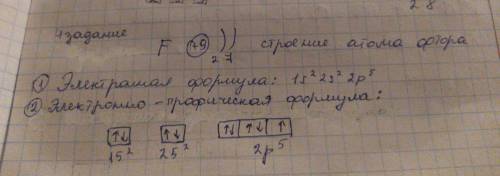 2 8
4задание
F +9 )) строение атома фтора
2 7
① Электронная формула: 1s² 2s² 2p⁵
② Электронно-графическая формула:
↑↓ ↑↓ ↑↓ ↑↓ ↑
1s² 2s² 2p⁵